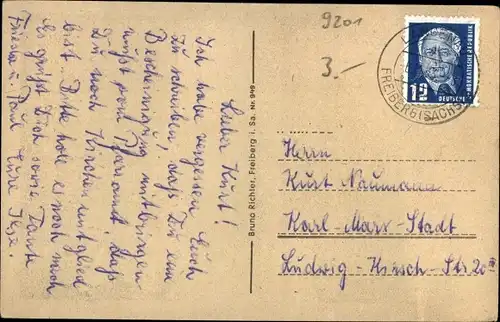 9201
3.—
Lieber Kurt!
Ich habe vergessen Euch
zu schreiben, dass Du eine
Bescheinigung mitbringen
musst vom Pfarramt, dass
Du noch Kirchenmitglied
bist. Bitte hole es noch nach
Es grüßt Dich sowie Tante
Frieda u. Paul Eure Ilse.
Bruno Richter, Freiberg i. Sa. Nr. 949
12
DEUTSCHE
DEMOKRATISCHE REPUBLIK
FREIBERG (SACHS)
Herrn
Kurt Naumann
Karl-Marx-Stadt
Ludwig-Hirsch-Str 20